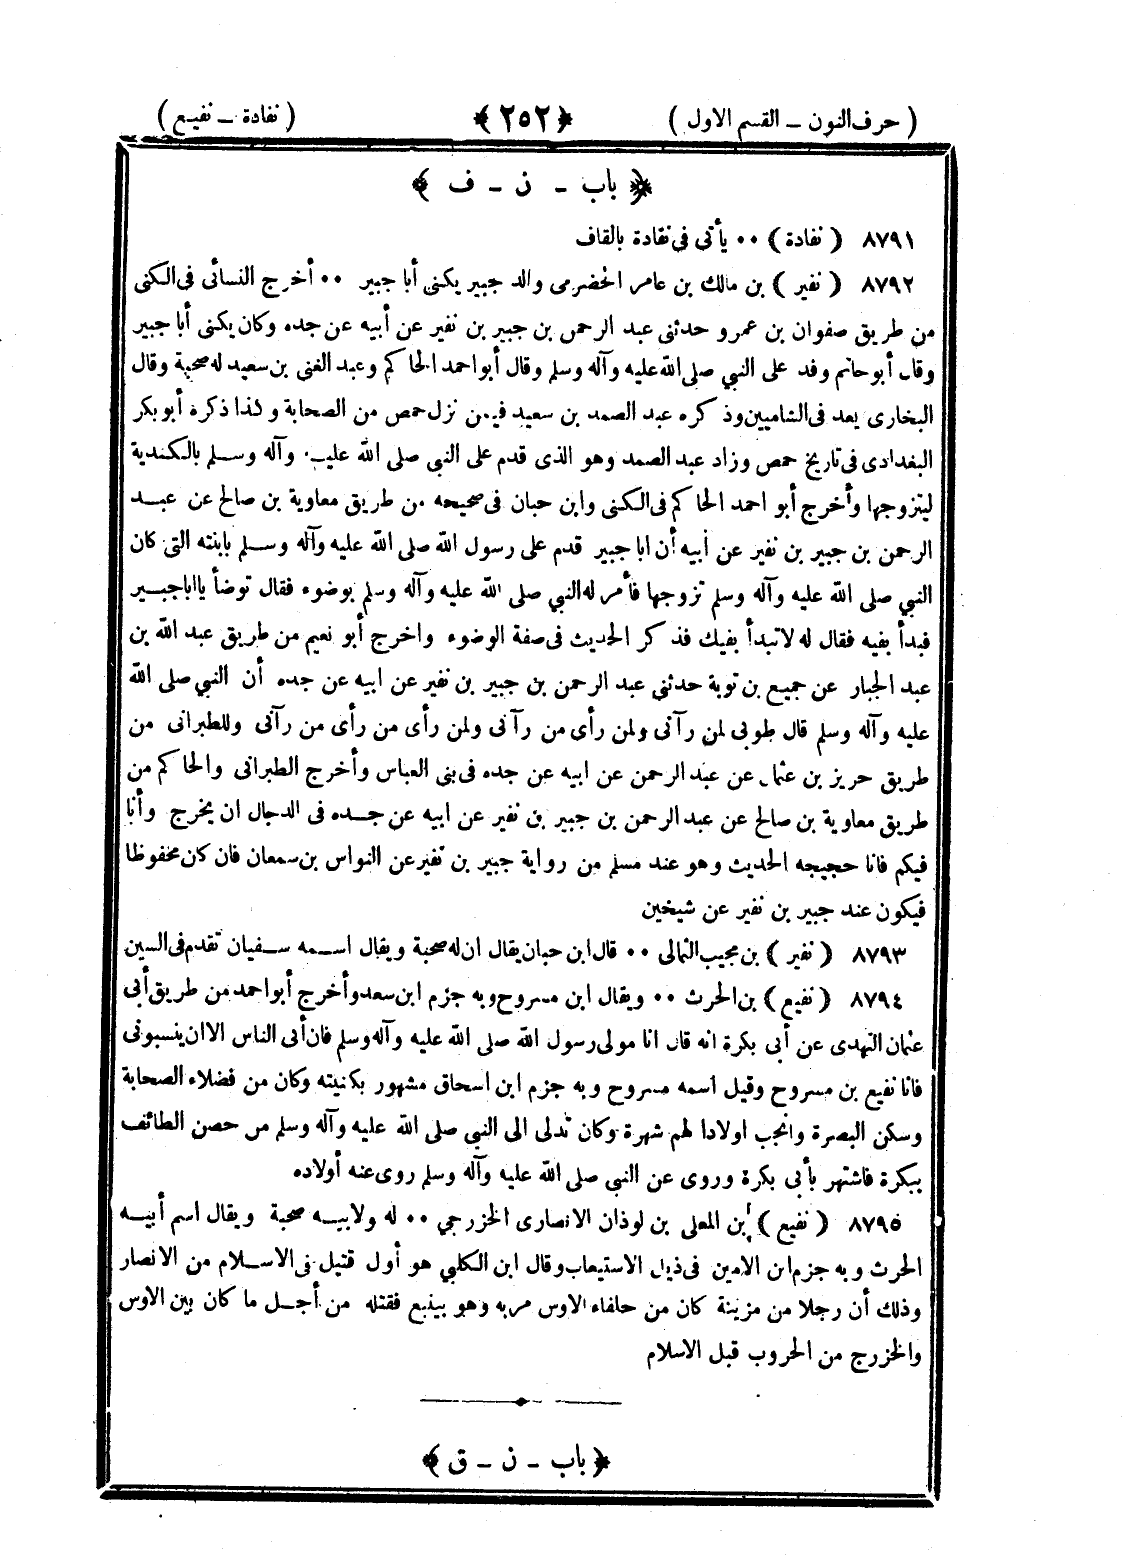 ( حرف النون – القسم الاول ) ﴿ ٢٥٢ ﴾ ( نفادة – نفيع )
﴿ باب – ن – ف ﴾
٨٧٩١ ( نفادة ) ٠٠ يأتى فى نقادة بالقاف
٨٧٩٢ ( نفير ) بن مالك بن عامر الحضرمى والد جبير يكنى أبا جبير ٠٠ أخرج النسائى فى الكنى
من طريق صفوان بن عمرو حدثنى عبد الرحمن بن جبير بن نفير عن أبيه عن جده وكان يكنى أبا جبير
وقال أبو حاتم وفد على النبي صلى الله عليه وآله وسلم وقال أبو احمد الحاكم وعبد الغنى بن سعيد له صحبة وقال
البخارى يعد فى الشاميين وذكره عبد الصمد بن سعيد فيمن نزل حمص من الصحابة وكذا ذكره أبو بكر
البغدادى فى تاريخ حمص وزاد عبد الصمد وهو الذى قدم على النبي صلى الله عليه وآله وسلم بالكندية
ليتزوجها وأخرج أبو احمد الحاكم فى الكنى وابن حبان فى صحيحه من طريق معاوية بن صالح عن عبد
الرحمن بن جبير بن نفير عن أبيه أن ابا جبير قدم على رسول الله صلى الله عليه وآله وسلم بابنته التى كان
النبي صلى الله عليه وآله وسلم تزوجها فأمر له النبي صلى الله عليه وآله وسلم بوضوء فقال توضأ يا ابا جبير
فبدأ بفيه فقال له لا تبدأ بفيك فذكر الحديث فى صفة الوضوء واخرج أبو نعيم من طريق عبد الله بن
عبد الجبار عن جميع بن توبة حدثنى عبد الرحمن بن جبير بن نفير عن ابيه عن جده أن النبي صلى الله
عليه وآله وسلم قال طوبى لمن رآنى ولمن رأى من رآنى ولمن رأى من رأى من رآنى وللطبرانى من
طريق حريز بن عثمان عن عبد الرحمن عن ابيه عن جده فى بنى العباس وأخرج الطبرانى والحاكم من
طريق معاوية بن صالح عن عبد الرحمن بن جبير بن نفير عن ابيه عن جده فى الدجال ان يخرج وأنا
فيكم فانا حجيجه الحديث وهو عند مسلم من رواية جبير بن نفير عن النواس بن سمعان فان كان محفوظا
فيكون عند جبير بن نفير عن شيخين
٨٧٩٣ ( نفير ) بن مجيب الثمالى ٠٠ قال ابن حبان يقال ان له صحبة ويقال اسمه سفيان تقدم فى السين
٨٧٩٤ ( نفيع ) بن الحرث ٠٠ ويقال ابن مسروح وبه جزم ابن سعد وأخرج أبو احمد من طريق أبى
عثمان النهدى عن أبى بكرة انه قال انا مولى رسول الله صلى الله عليه وآله وسلم فان أبى الناس الا ان ينسبونى
فانا نفيع بن مسروح وقيل اسمه مسروح وبه جزم ابن اسحاق مشهور بكنيته وكان من فضلاء الصحابة
وسكن البصرة وانجب اولادا لهم شهرة وكان تدلى الى النبي صلى الله عليه وآله وسلم من حصن الطائف
ببكرة فاشتهر بأبى بكرة وروى عن النبي صلى الله عليه وآله وسلم روى عنه أولاده
٨٧٩٥ ( نفيع ) بن المعلى بن لوذان الانصارى الخزرجي ٠٠ له ولابيه صحبة ويقال اسم أبيه
الحرث وبه جزم ابن الامين فى ذيل الاستيعاب وقال ابن الكلبي هو أول قتيل فى الاسلام من الانصار
وذلك أن رجلا من مزينة كان من حلفاء الاوس مر به وهو بينبع فقتله من أجل ما كان بين الاوس
والخزرج من الحروب قبل الاسلام
﴿ باب – ن – ق ﴾